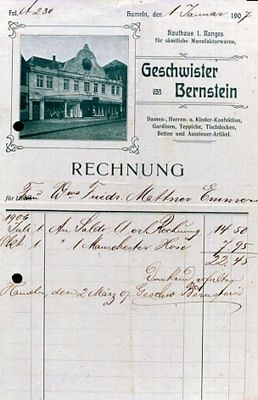 Fol. A 230
Hameln, den 1 Januar 1907
Kaufhaus I. Ranges
für sämtliche Manufakturwaren,
Geschwister
Bernstein
Damen-, Herren- u. Kinder-Konfektion,
Gardinen, Teppiche, Tischdecken,
Betten und Aussteuer-Artikel.
RECHNUNG
für Frau Wwe Friedr. Mattner Emmern
1906
Juli 1 An Saldo Rechnung 14 50
Okt. 1 " 1 Manchester Hose 7,95
22,45
Dankend erhalten
Hameln, den 2 März 07. Geschw. Bernstein